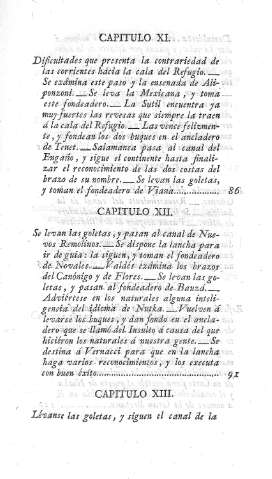 CAPITULO XI.
Dificultades que presenta la contrariedad de
las corrientes hácia la cala del Refugio. —
Se exâmina este paso y la ensenada de Aii-
ponzoni. — Se leva la Mexicana, y toma
este fondeadero. — La Sutil encuentra ya
muy fuertes las revesas que siempre la traen
á la cala del Refugio. — Las vence felizmen-
te, y fondean los dos buques en el ancladero
de Tenet. — Salamanca pasa al canal del
Engaño, y sigue el continente hasta finali-
zar el reconocimiento de las dos costas del
brazo de su nombre. — Se levan las goletas,
y toman el fondeadero de Viana................. 86
CAPITULO XII.
Se levan las goletas, y pasan al canal de Nue-
vos Remolinos. — Se dispone la lancha para
ir de guia: la siguen, y toman el fondeadero
de Novales. — Valdés exâmina los brazos
del Canónigo y de Flores. — Se levan las go-
letas, y pasan al fondeadero de Bauzá. —
Adviértese en los naturales alguna inteli-
gencia del idioma de Nutka. — Vuelven á
levarse los buques, y dan fondo en el ancla-
dero que se llamó del Insulto á causa del que
hiciéron los naturales á nuestra gente. — Se
destina á Vernacci para que en la lancha
haga varios reconocimientos, y los executa
con buen éxîto................................... 91
CAPITULO XIII.
Lévanse las goletas, y siguen el canal de la